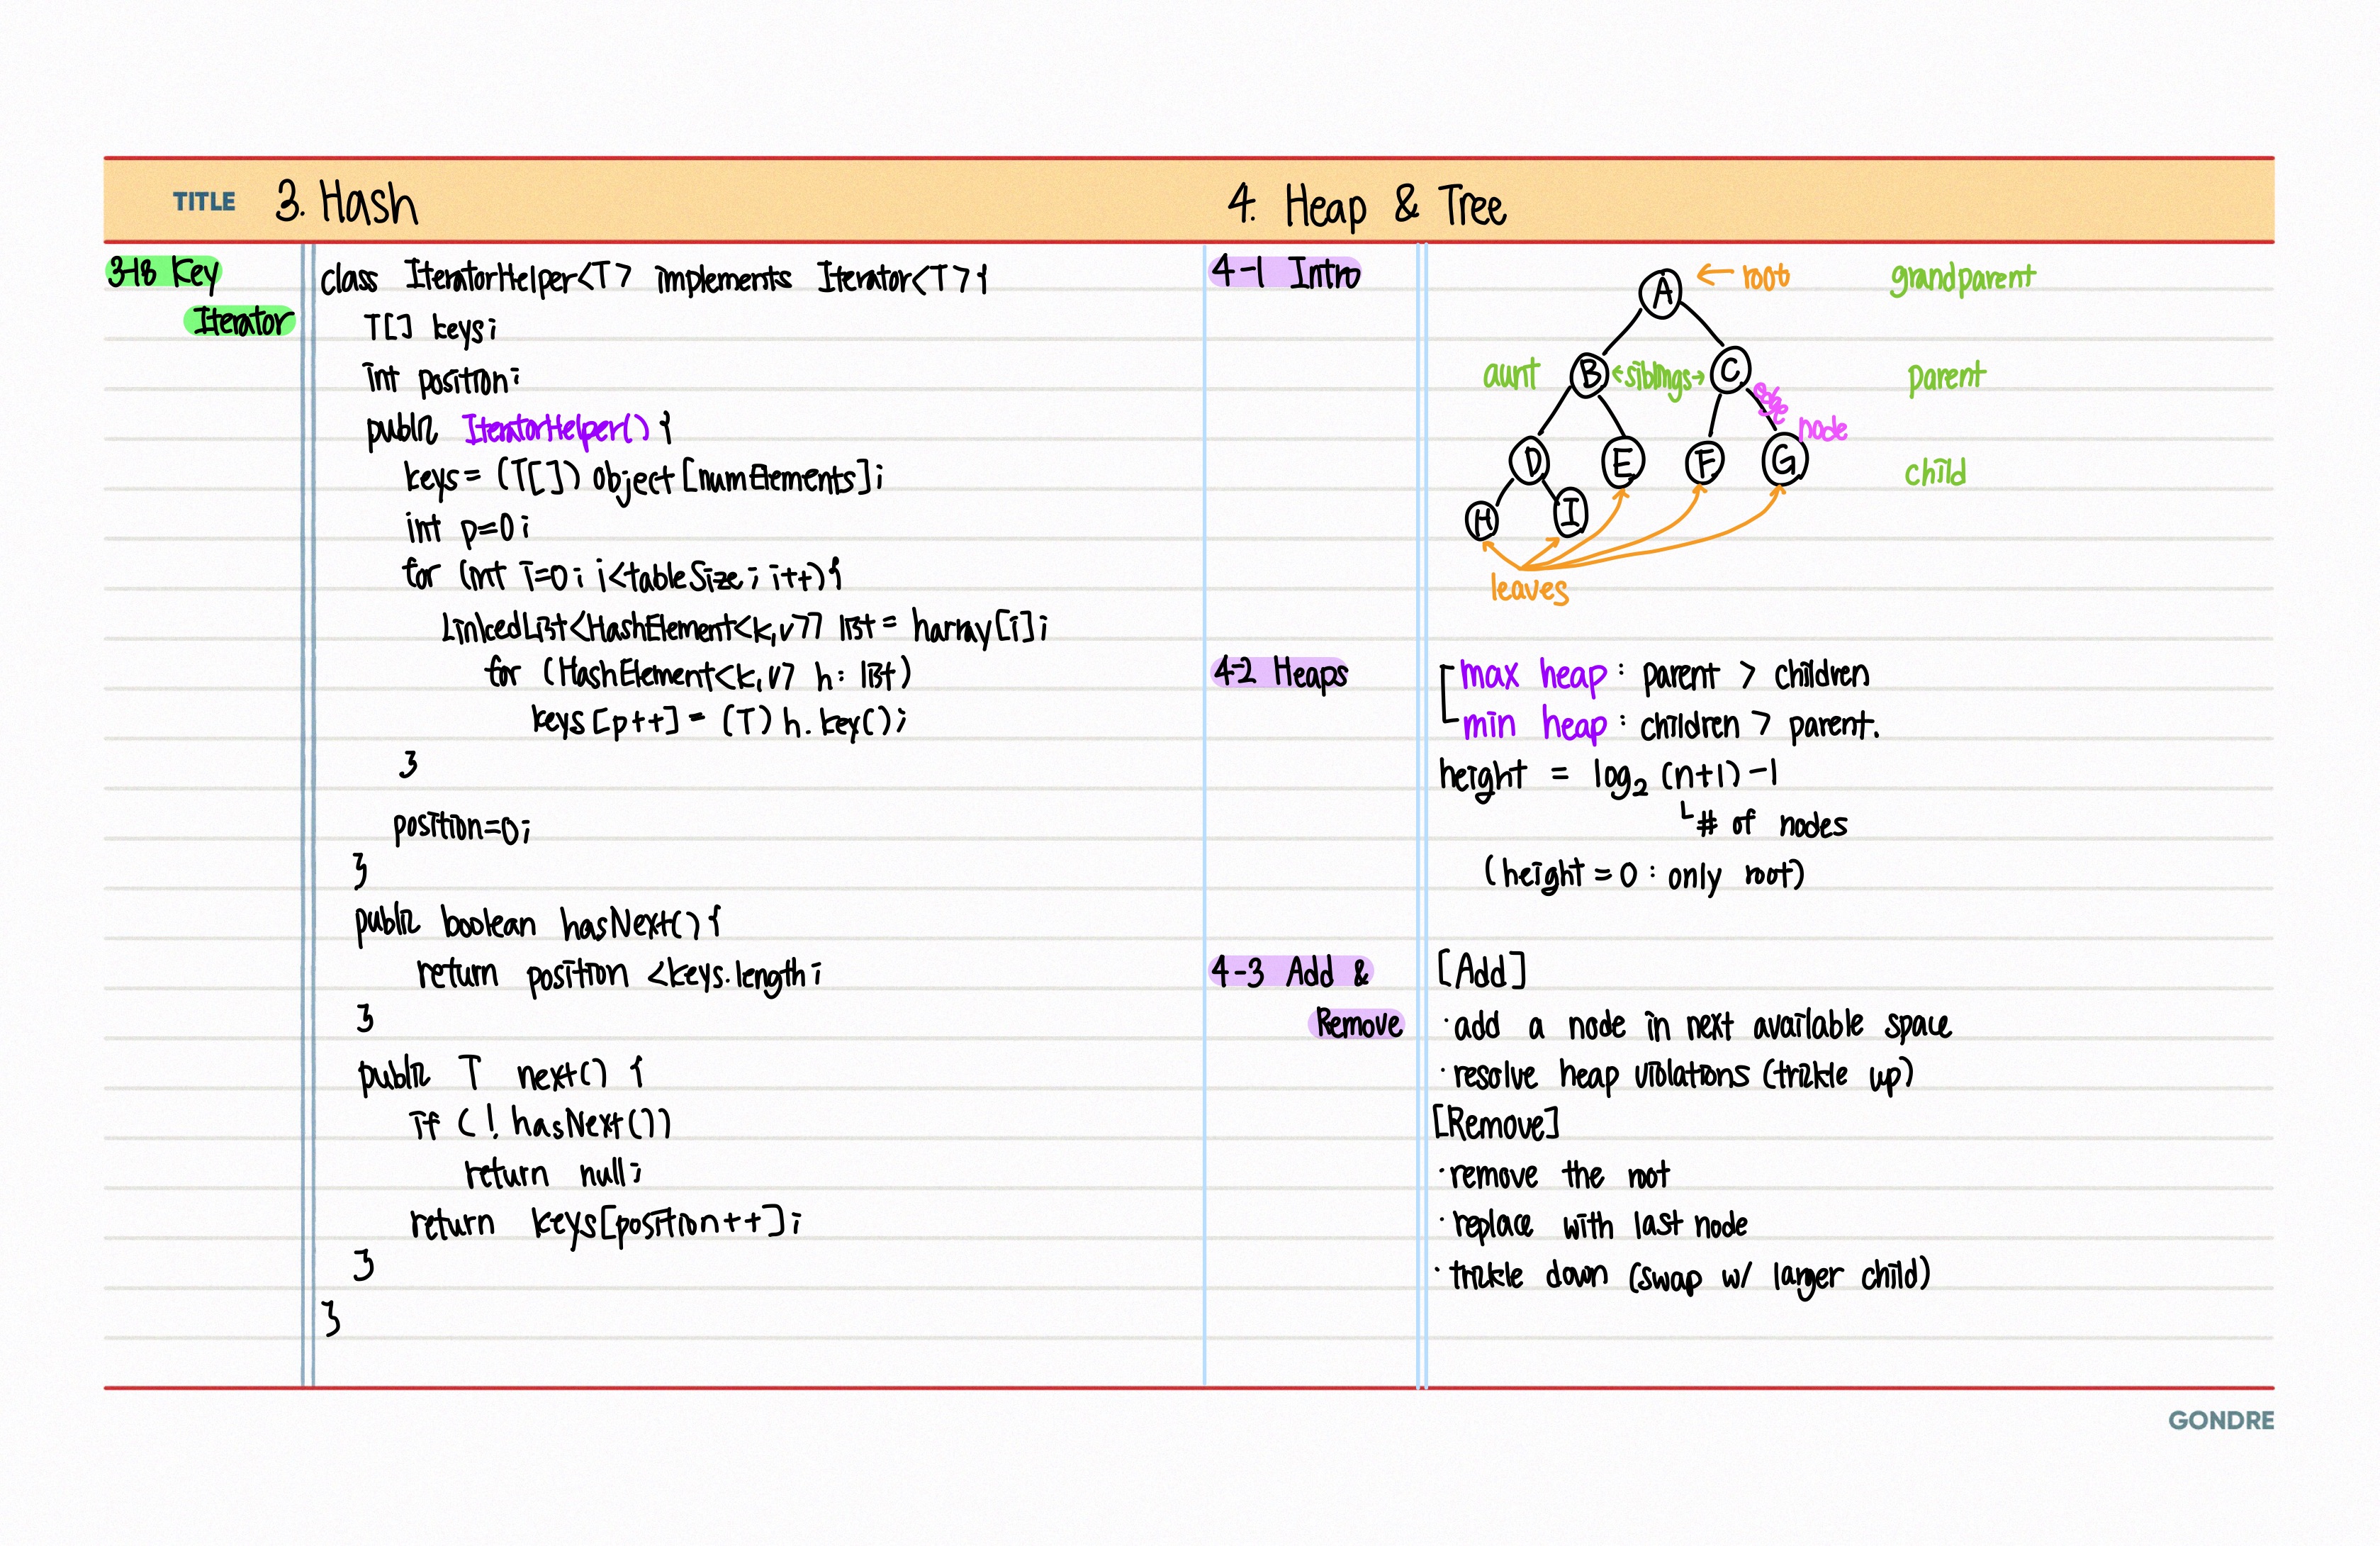 TITLE 3. Hash
3-18 Key
Iterator
class IteratorHelper<T> implements Iterator<T>{
T[] keys;
int position;
public IteratorHelper() {
keys = (T[]) object [numElements];
int p=0;
for (int i=0; i<tableSize; i++){
LinkedList<HashElement<k,v>> list = harray[i];
for (HashElement<k,v> h: list)
keys[p++] = (T) h.key();
}
position=0;
}
public boolean hasNext() {
return position <keys.length;
}
public T next() {
if (! hasNext())
return null;
return keys[position++];
}
}
4. Heap & Tree
4-1 Intro
A ← root grandparent
aunt B ←siblings→ C parent
edge
node
D E F G child
H I
leaves
4-2 Heaps
max heap : parent > children
min heap : children > parent.
height = log₂ (n+1) -1
# of nodes
(height = 0 : only root)
4-3 Add &
Remove
[Add]
· add a node in next available space
· resolve heap violations (trickle up)
[Remove]
· remove the root
· replace with last node
· trickle down (swap w/ larger child)
GONDRE